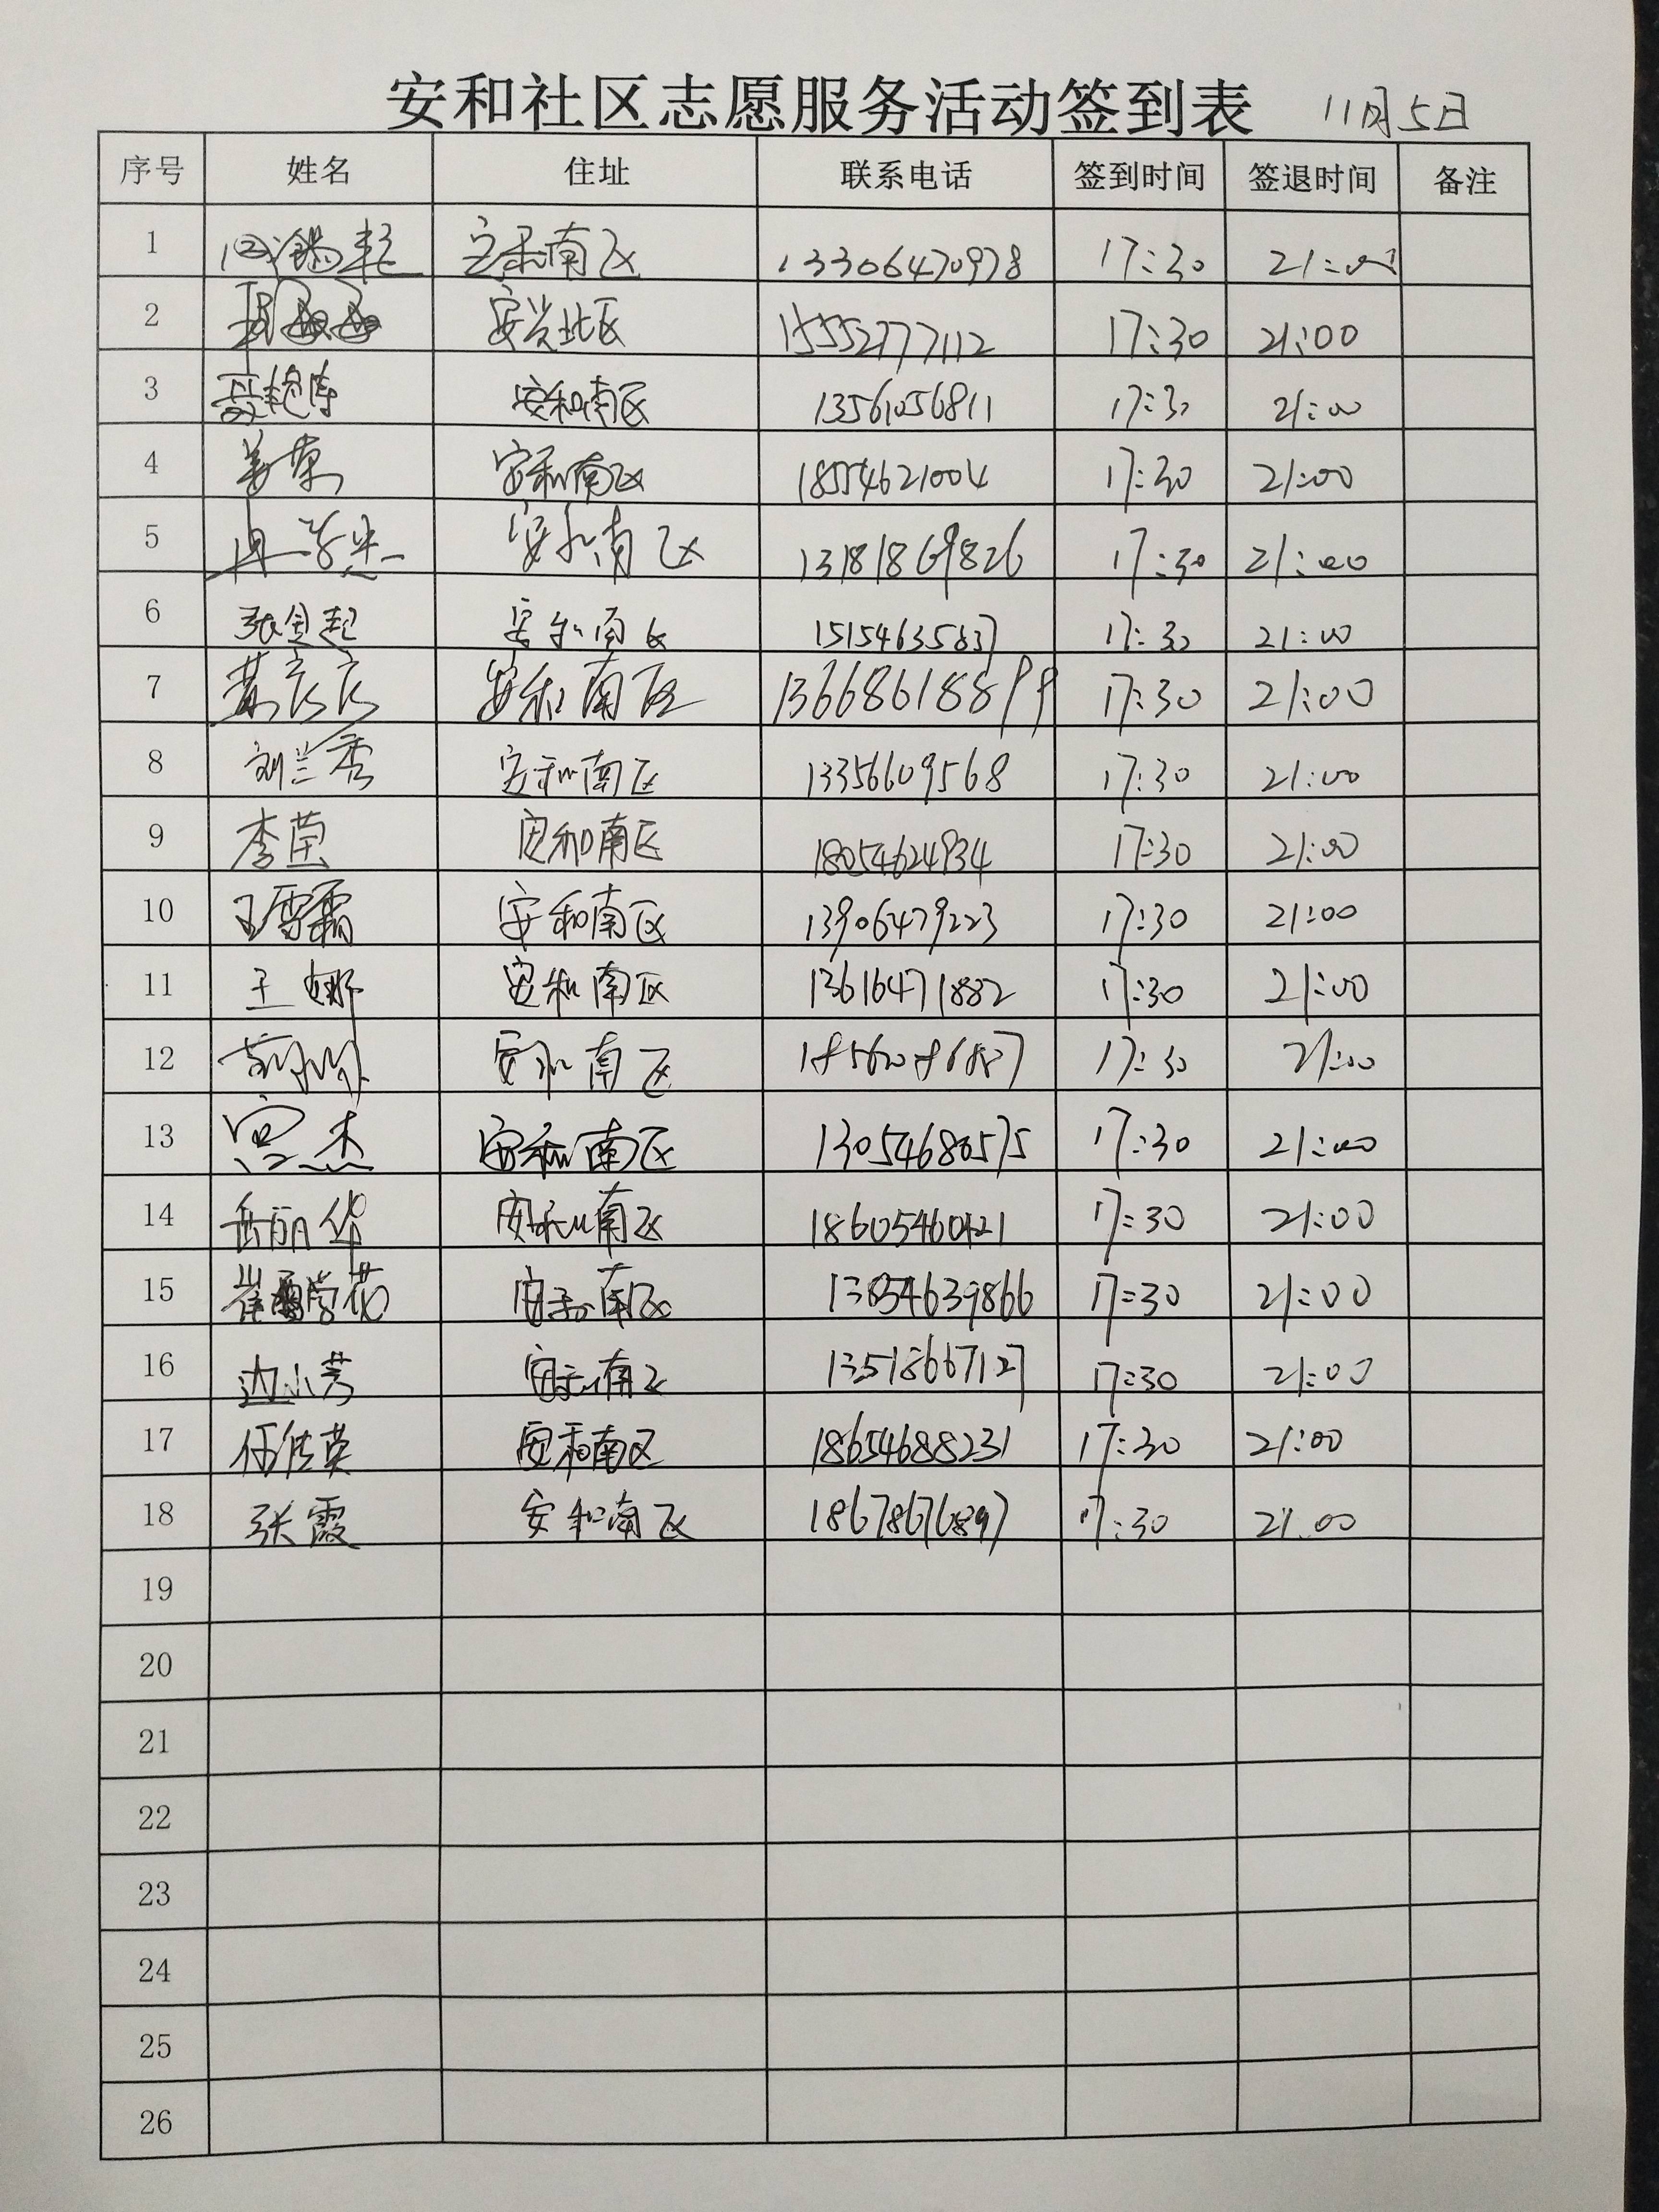 安和社区志愿服务活动签到表 11月5日
序号 姓名 住址 联系电话 签到时间 签退时间 备注
1 安和南区 13306470978 17:30 21:00
2 安兴北区 15552777112 17:30 21:00
3 安和南区 13561056811 17:30 21:00
4 姜荣 安和南区 18554621004 17:30 21:00
5 安和南区 13181869826 17:30 21:00
6 张金起 安和南区 15154635837 17:30 21:00
7 安和南区 13668618899 17:30 21:00
8 刘兰香 安和南区 13356609568 17:30 21:00
9 李莹 安和南区 18054624934 17:30 21:00
10 王雪霜 安和南区 13906479223 17:30 21:00
11 王娜 安和南区 13616471882 17:30 21:00
12 安和南区 17:30 21:00
13 宫杰 安和南区 13054680575 17:30 21:00
14 岳丽华 安和南区 17:30 21:00
15 安和南区 17:30 21:00
16 边小芳 安和南区 13518667127 17:30 21:00
17 安和南区 18654688231 17:30 21:00
18 张霞 安和南区 18678676897 17:30 21:00
19
20
21
22
23
24
25
26